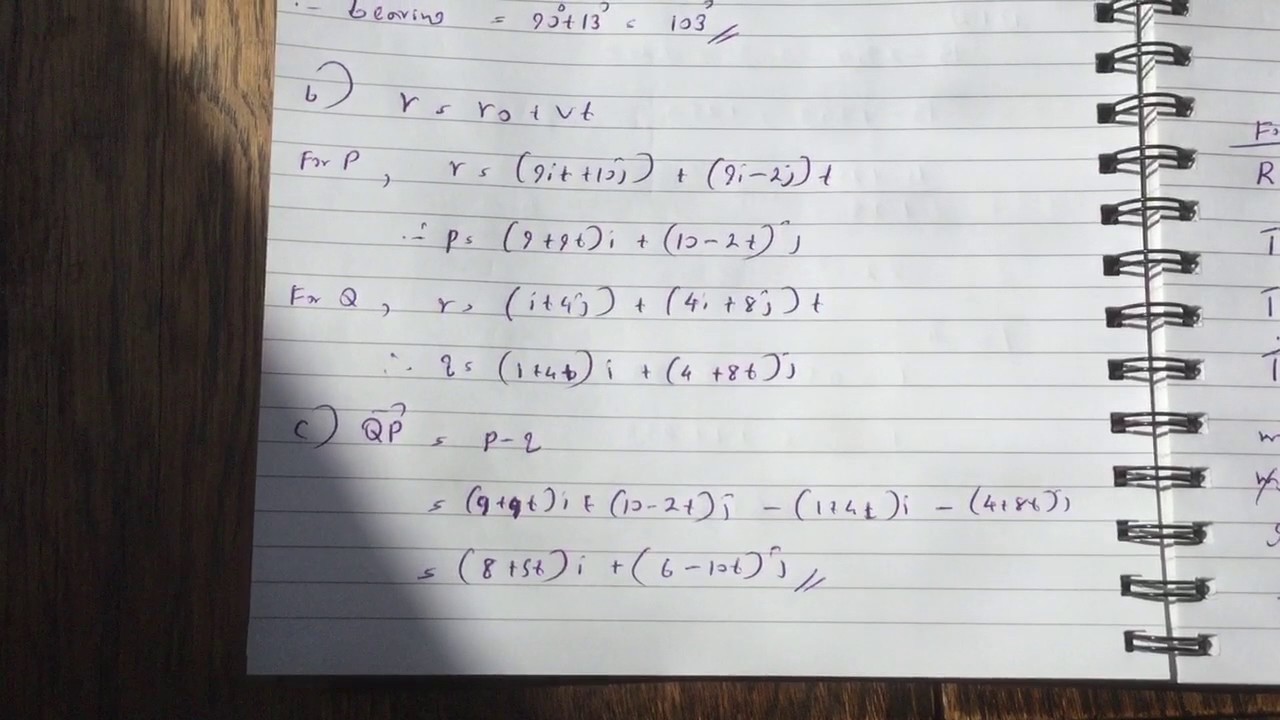 ∴ bearing = 90° + 13° = 103°
b) r = r0 + vt
For P, r = (9i + 10j) + (9i - 2j) t
∴ p = (9 + 9t) i + (10 - 2t) j
For Q, r = (i + 4j) + (4i + 8j) t
∴ q = (1 + 4t) i + (4 + 8t) j
c) QP = p - q
= (9 + 9t) i + (10 - 2t) j - (1 + 4t) i - (4 + 8t) j
= (8 + 5t) i + (6 - 10t) j
R
T
T
T